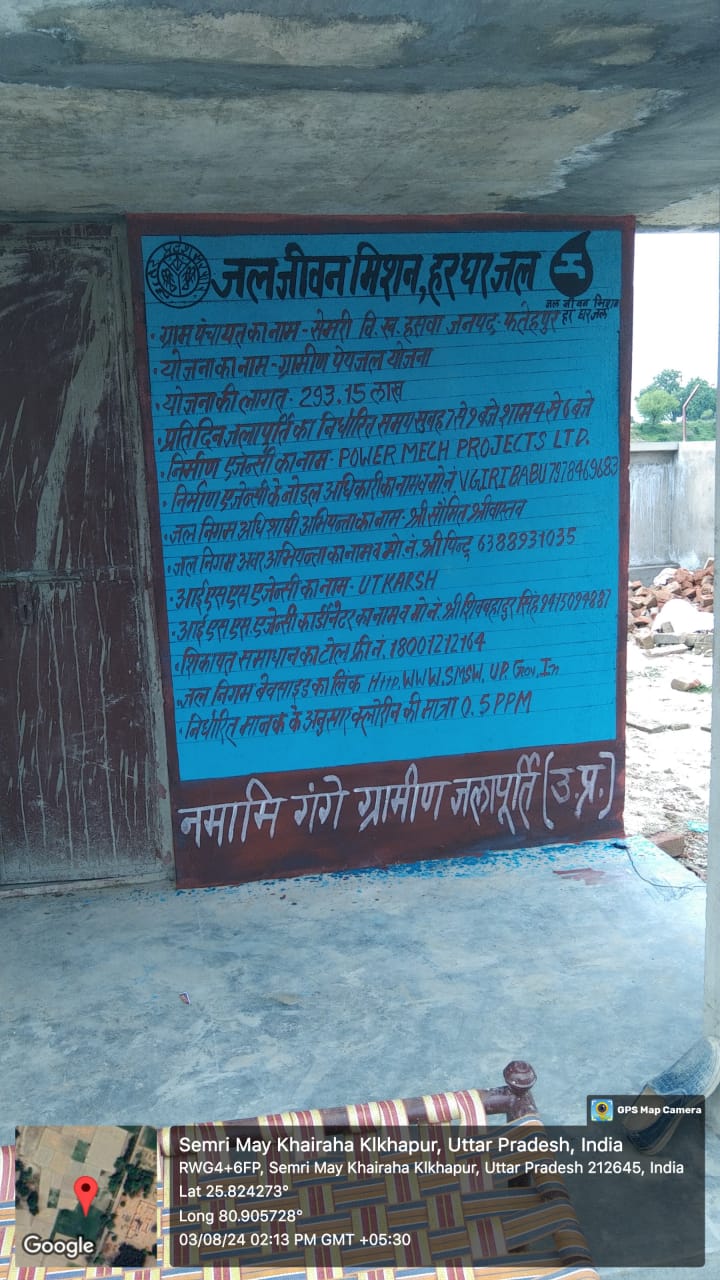 जल जीवन मिशन, हर घर जल
जल जीवन मिशन
हर घर जल
• ग्राम पंचायत का नाम - सेमरी वि. ख. हसवा जनपद - फतेहपुर
• योजना का नाम - ग्रामीण पेयजल योजना
• योजना की लागत - 293.15 लाख
• प्रतिदिन जलापूर्ति का निर्धारित समय सुबह 7 से 9 बजे शाम 4 से 6 बजे
• निर्माण एजेन्सी का नाम - POWER MECH PROJECTS LTD.
• निर्माण एजेन्सी के नोडल अधिकारी का नाम व मो नं V.GIRIBABU 7978469683
• जल निगम अधिशाषी अभियन्ता का नाम - श्री सौमित श्रीवास्तव
• जल निगम अवर अभियन्ता का नाम व मो. नं. श्री पिन्टू 6388931035
• आई एस एस एजेन्सी का नाम - UTKARSH
• आई एस.एस. एजेन्सी कार्डीनेटर का नाम व मो नं. श्री शिवबहादुर सिंह 9415094887
• शिकायत समाधान का टोल फ्री नं. 18001212164
• जल निगम बेवसाइड का लिंक Http.WWW.SMSW.UP.Gov.In
• निर्धारित मानक के अनुसार क्लोरीन की मात्रा 0.5 PPM
नमामि गंगे ग्रामीण जलापूर्ति (उ.प्र.)
GPS Map Camera
Semri May Khairaha Klkhapur, Uttar Pradesh, India
RWG4+6FP, Semri May Khairaha Klkhapur, Uttar Pradesh 212645, India
Lat 25.824273°
Long 80.905728°
03/08/24 02:13 PM GMT +05:30
Google